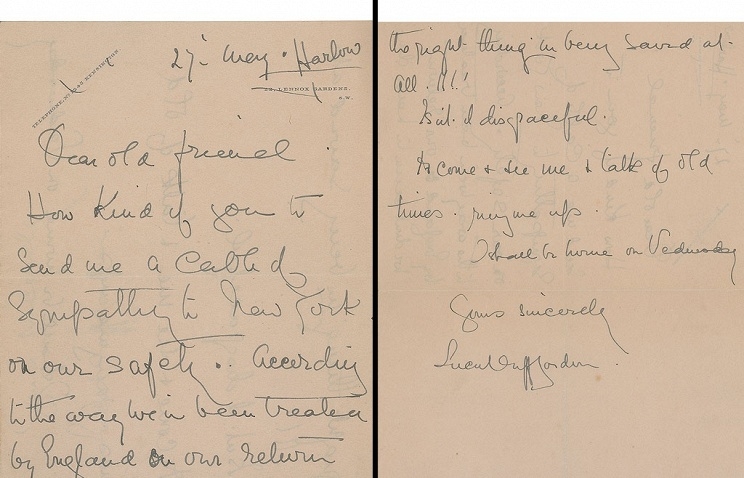 27th May. Harlow
TELEPHONE, KENSINGTON
LENNOX GARDENS,
S.W.
Dear old friend.
How Kind of you to
send me a Cable of
Sympathy to New York
on our safety.. According
to the way we've been treated
by England on our return
the right thing in being saved at
all. !!!!
Isn't it disgraceful.
Do come & see me & talk of old
times. ring me up.
I shall be home on Wednesday
Yours sincerely
Lucy Duff Gordon.